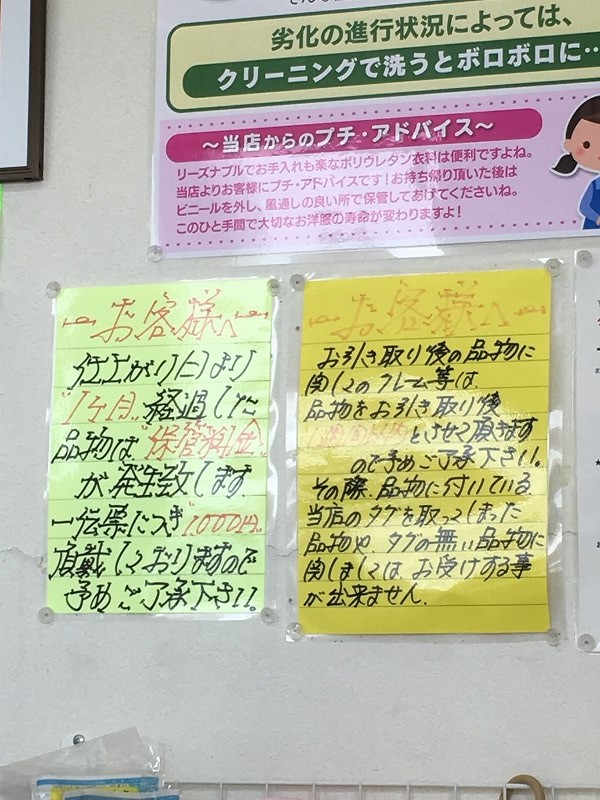 劣化の進行状況によっては、
クリーニングで洗うとボロボロに…
～当店からのプチ・アドバイス～
リーズナブルでお手入れも楽なポリウレタン衣料は便利ですよね。
当店よりお客様にプチ・アドバイスです！お持ち帰り頂いた後は
ビニールを外し、風通しの良い所で保管してあげてくださいね。
このひと手間で大切なお洋服の寿命が変わりますよ！
お客様へ
仕上がり日より
"1ヶ月"経過した
品物は"保管料金"
が発生致します
一伝票につき"1000円"
頂戴しておりますので
予めご了承下さい!。
お客様へ
お引き取り後の品物に
関してのクレーム等は
品物をお引き取り後
1週間以内とさせて頂きます
ので予めご了承下さい!。
その際、品物に付いている
当店のタグを取ってしまった
品物や タグの無い品物に
関しましては、お受けする事
が出来ません.